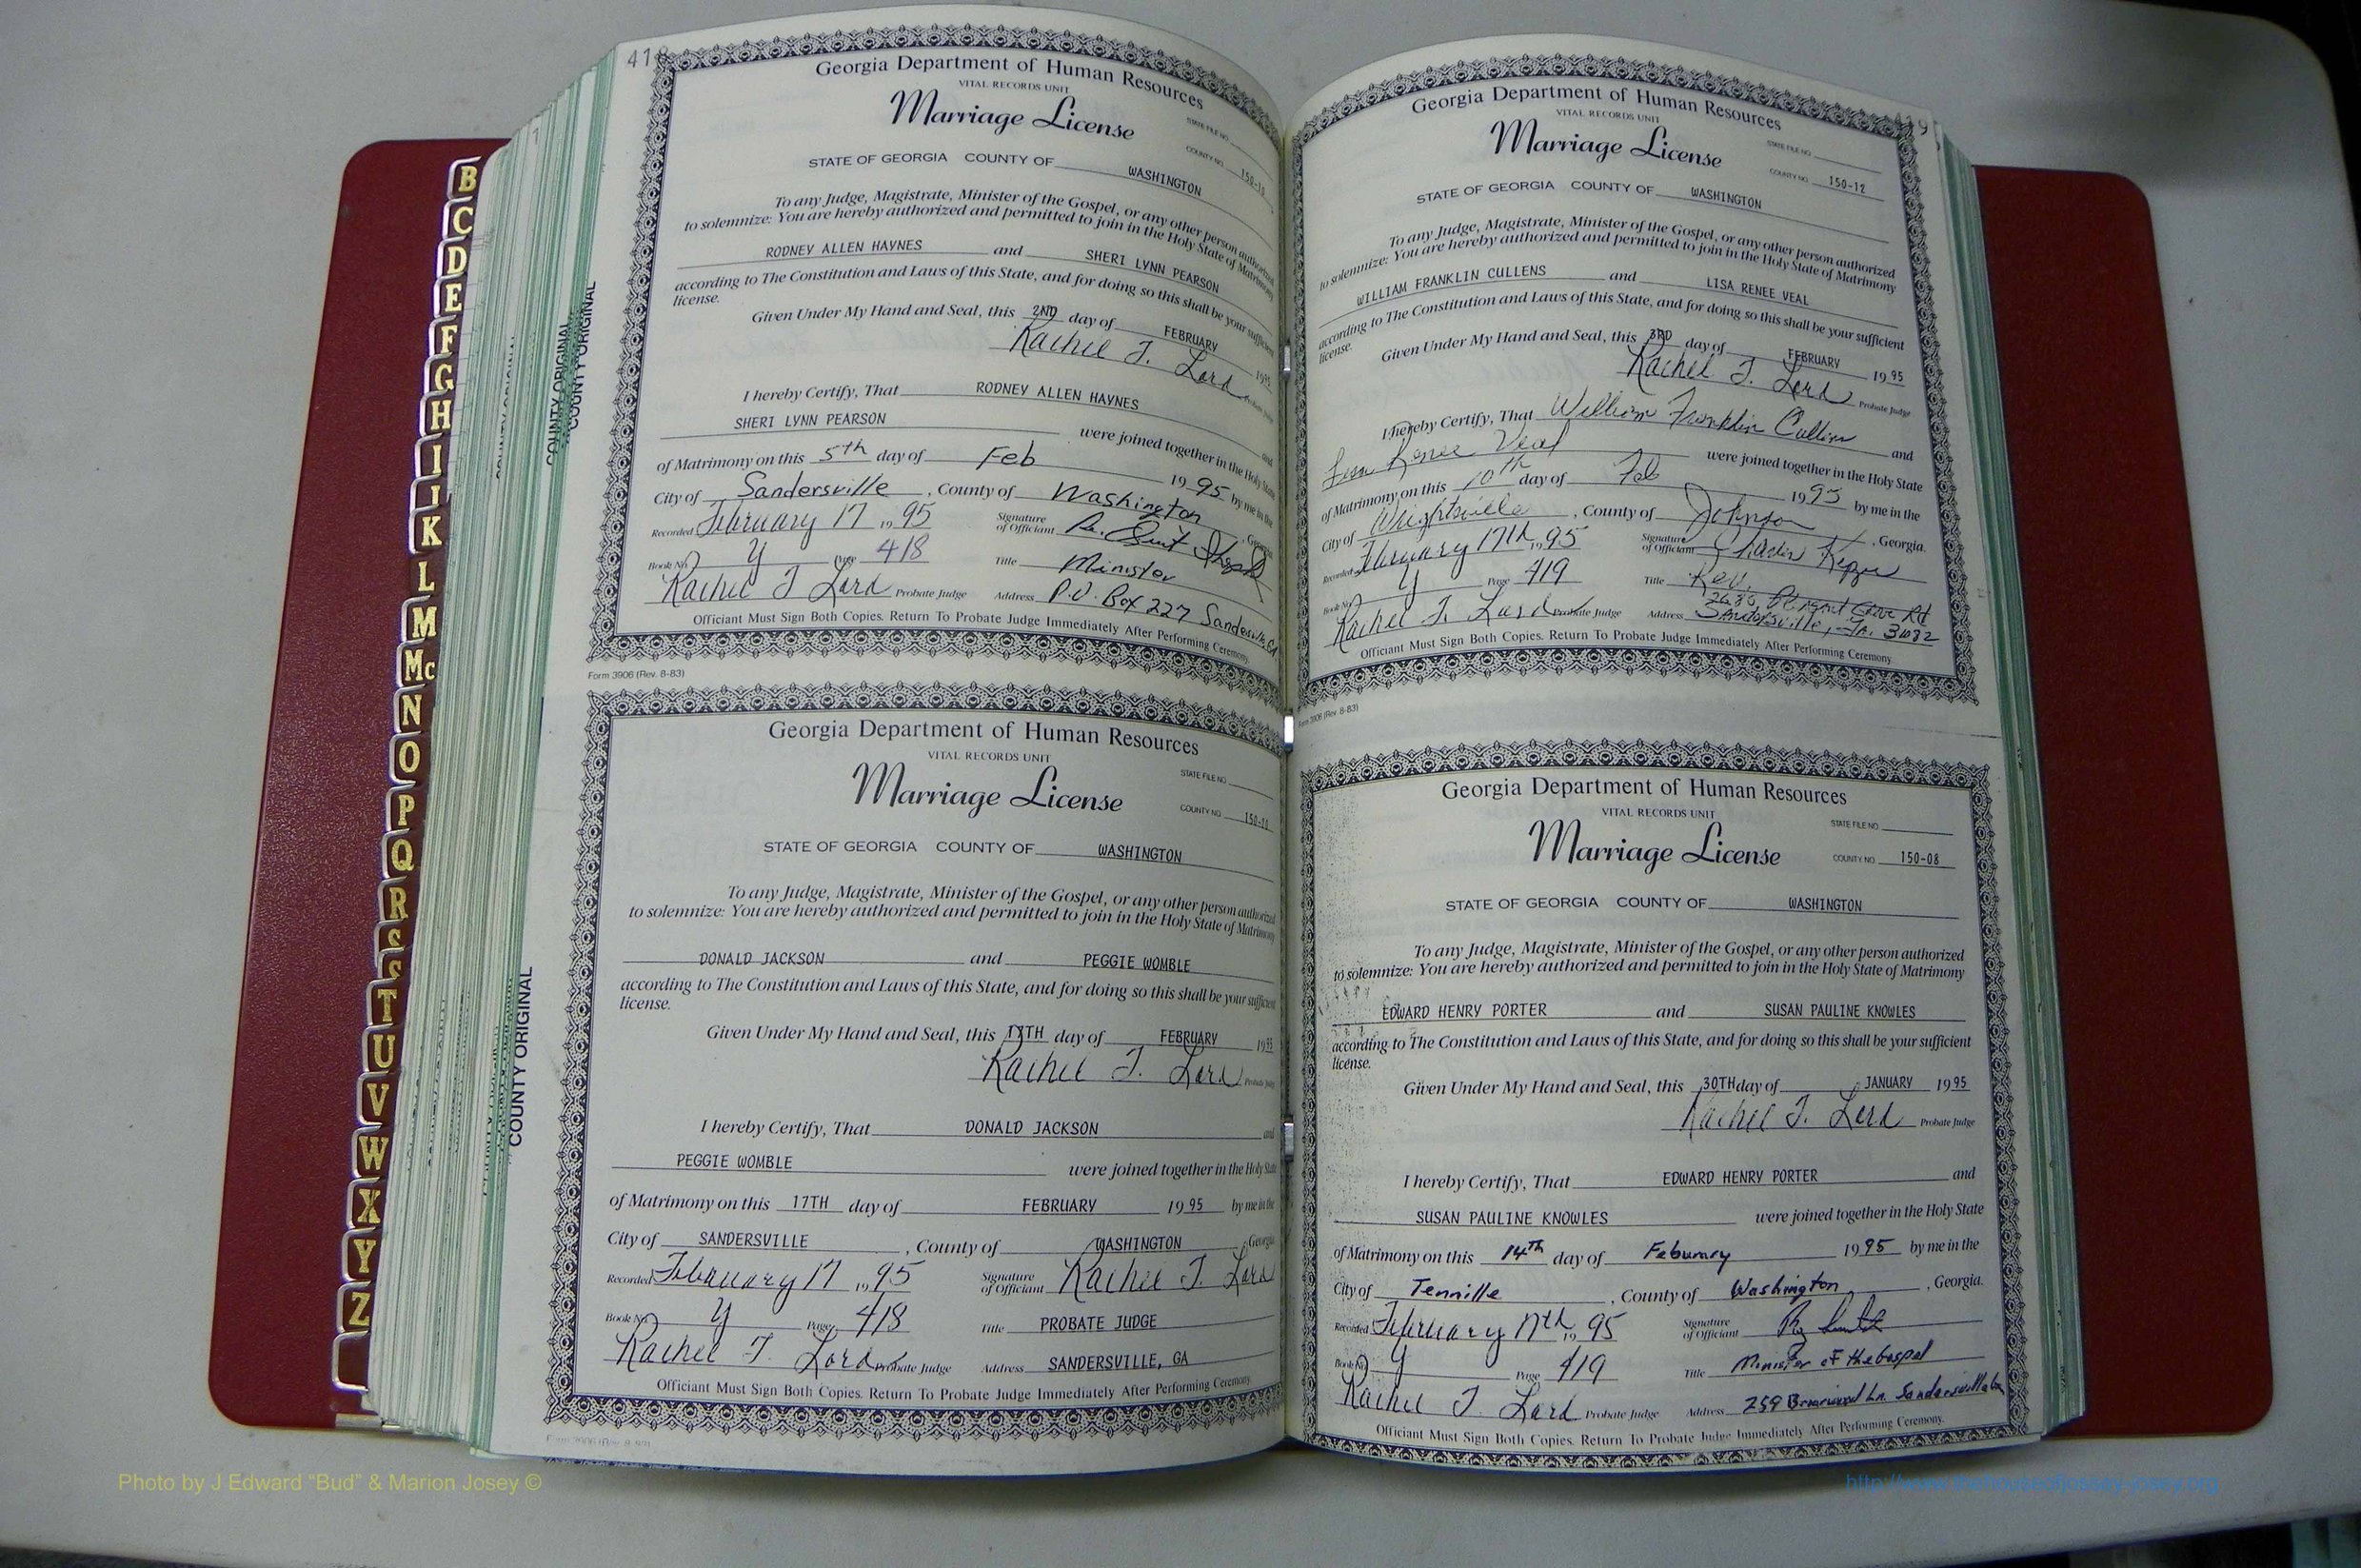 418
Georgia Department of Human Resources
VITAL RECORDS UNIT
Marriage License
STATE FILE NO.
COUNTY NO.
STATE OF GEORGIA COUNTY OF WASHINGTON
To any Judge, Magistrate, Minister of the Gospel, or any other person authorized
to solemnize: You are hereby authorized and permitted to join in the Holy State of Matrimony
RODNEY ALLEN HAYNES and SHERI LYNN PEARSON
according to The Constitution and Laws of this State, and for doing so this shall be your sufficient
license.
Given Under My Hand and Seal, this 2ND day of FEBRUARY 1995
Rachel T. Lord Probate Judge
I hereby Certify, That RODNEY ALLEN HAYNES and
SHERI LYNN PEARSON were joined together in the Holy State
of Matrimony on this 5th day of Feb 1995 by me in the
City of Sandersville, County of Washington, Georgia
Recorded February 17, 1995 Signature of Officiant
Book No. Y Page 418 Title Minister
Rachel T Lord Probate Judge Address P.O. Box 227 Sandersville, GA
Officiant Must Sign Both Copies. Return To Probate Judge Immediately After Performing Ceremony.
Form 3906 (Rev. 8-83)
Georgia Department of Human Resources
VITAL RECORDS UNIT
Marriage License
STATE FILE NO.
COUNTY NO.
STATE OF GEORGIA COUNTY OF WASHINGTON
To any Judge, Magistrate, Minister of the Gospel, or any other person authorized
to solemnize: You are hereby authorized and permitted to join in the Holy State of Matrimony
DONALD JACKSON and PEGGIE WOMBLE
according to The Constitution and Laws of this State, and for doing so this shall be your sufficient
license.
Given Under My Hand and Seal, this day of FEBRUARY 1995
Rachel T. Lord Probate Judge
I hereby Certify, That DONALD JACKSON and
PEGGIE WOMBLE were joined together in the Holy State
of Matrimony on this 17TH day of FEBRUARY 1995 by me in the
City of SANDERSVILLE, County of WASHINGTON, Georgia
Recorded February 17, 1995 Signature of Officiant Rachel T. Lord
Book No. Y Page 418 Title PROBATE JUDGE
Rachel T. Lord Probate Judge Address SANDERSVILLE, GA
Officiant Must Sign Both Copies. Return To Probate Judge Immediately After Performing Ceremony.
Form 3906 (Rev. 8-83)
419
Georgia Department of Human Resources
VITAL RECORDS UNIT
Marriage License
STATE FILE NO.
COUNTY NO. 150-12
STATE OF GEORGIA COUNTY OF WASHINGTON
To any Judge, Magistrate, Minister of the Gospel, or any other person authorized
to solemnize: You are hereby authorized and permitted to join in the Holy State of Matrimony
WILLIAM FRANKLIN CULLENS and LISA RENEE VEAL
according to The Constitution and Laws of this State, and for doing so this shall be your sufficient
license.
Given Under My Hand and Seal, this 3RD day of FEBRUARY 1995
Rachel T. Lord Probate Judge
I hereby Certify, That William Franklin Cullens and
Lisa Renee Veal were joined together in the Holy State
of Matrimony on this 10th day of Feb 1995 by me in the
City of Wrightsville, County of Johnson, Georgia.
Recorded February 17th, 1995 Signature of Officiant
Book No. Y Page 419 Title Rev.
Rachel T. Lord Probate Judge Address Rd
Sandersville, Ga.
Officiant Must Sign Both Copies. Return To Probate Judge Immediately After Performing Ceremony.
Form 3906 (Rev. 8-83)
Georgia Department of Human Resources
VITAL RECORDS UNIT
Marriage License
STATE FILE NO.
COUNTY NO. 150-08
STATE OF GEORGIA COUNTY OF WASHINGTON
To any Judge, Magistrate, Minister of the Gospel, or any other person authorized
to solemnize: You are hereby authorized and permitted to join in the Holy State of Matrimony
EDWARD HENRY PORTER and SUSAN PAULINE KNOWLES
according to The Constitution and Laws of this State, and for doing so this shall be your sufficient
license.
Given Under My Hand and Seal, this 30TH day of JANUARY 1995
Rachel T. Lord Probate Judge
I hereby Certify, That EDWARD HENRY PORTER and
SUSAN PAULINE KNOWLES were joined together in the Holy State
of Matrimony on this 14th day of Feburary 1995 by me in the
City of Tennille, County of Washington, Georgia.
Recorded February 17th, 1995 Signature of Officiant
Book No. Y Page 419 Title Minister of the Gospel
Rachel T. Lord Probate Judge Address 259 Briarwood Ln. Sandersville
Officiant Must Sign Both Copies. Return To Probate Judge Immediately After Performing Ceremony.
COUNTY ORIGINAL
COUNTY ORIGINAL
COUNTY ORIGINAL
B
C
D
E
F
G
H
I
K
L
M
Mc
N
O
P
Q
R
S
T
U
V
W
X
Y
Z
Photo by J Edward “Bud” & Marion Josey ©
http://www.thehouseofjossey-josey.org